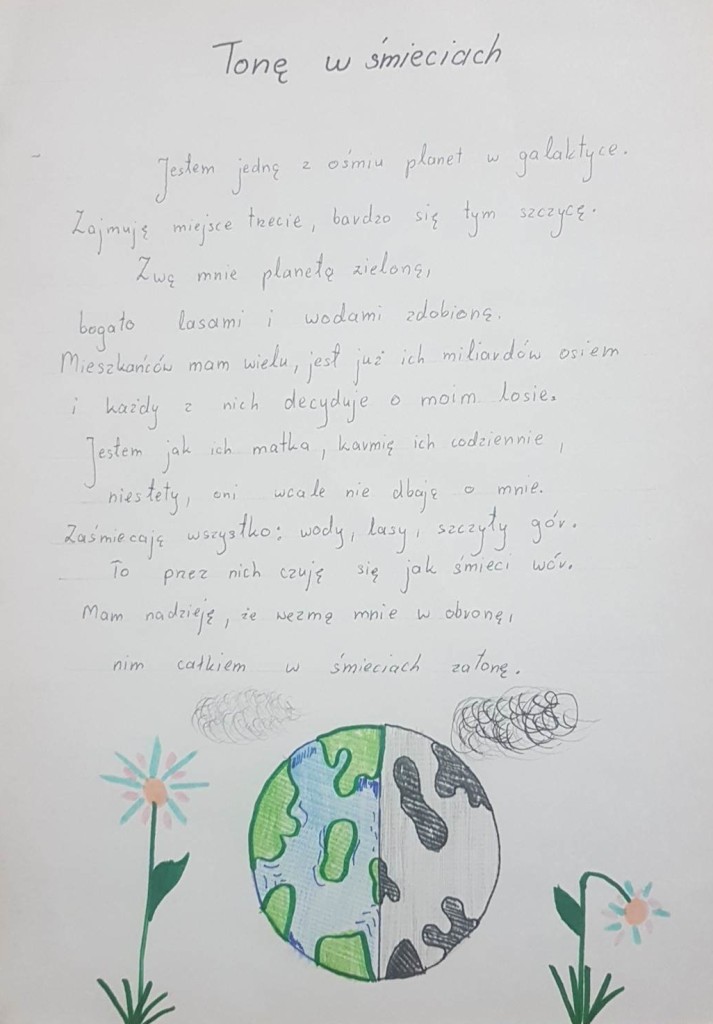 Tonę w śmieciach
Jestem jedną z ośmiu planet w galaktyce.
Zajmuję miejsce trzecie, bardzo się tym szczycę.
Zwą mnie planetą zieloną,
bogato lasami i wodami zdobioną.
Mieszkańców mam wielu, jest już ich miliardów osiem
i każdy z nich decyduje o moim losie.
Jestem jak ich matka, karmię ich codziennie,
niestety, oni wcale nie dbają o mnie.
Zaśmiecają wszystko: wody, lasy, szczyty gór.
To przez nich czuję się jak śmieci wór.
Mam nadzieję, że wezmą mnie w obronę,
nim całkiem w śmieciach zatonę.